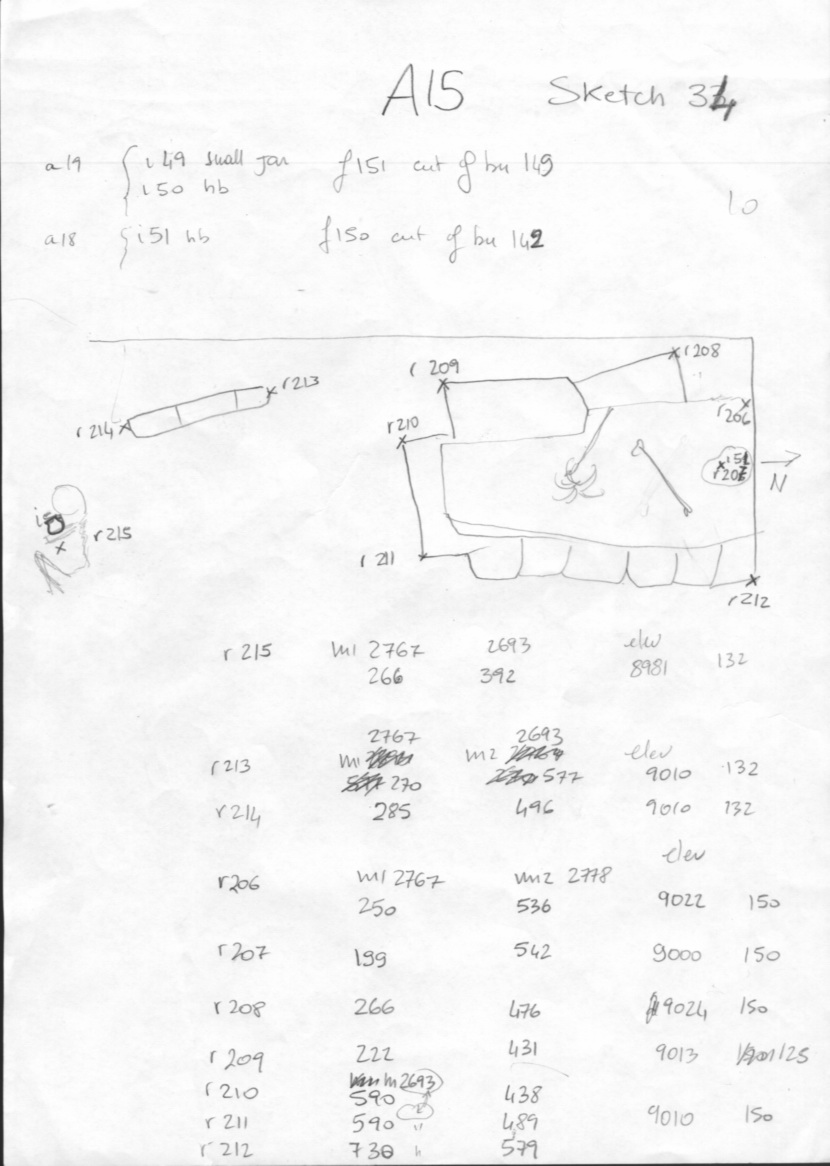 A15 Sketch 34
a19 { i49 small jar f151 cut of bu 149
i50 hb
10
a18 { i51 hb f150 cut of bu 142
r 208
r 209
r 213
r 206
r 214
r 210
i51
r 207
N
r 215
r 211
r 212
r 215 m1 2767 2693 elev
266 392 8981 132
2767 2693
r 213 m1 m2 elev
270 577 9010 132
r 214 285 496 9010 132
elev
r 206 m1 2767 m2 2778
250 536 9022 150
r 207 199 542 9000 150
r 208 266 476 9024 150
r 209 222 431 9013 125
r 210 m 2693
590 438
r 211 590 " 489 9010 150
r 212 730 " 579